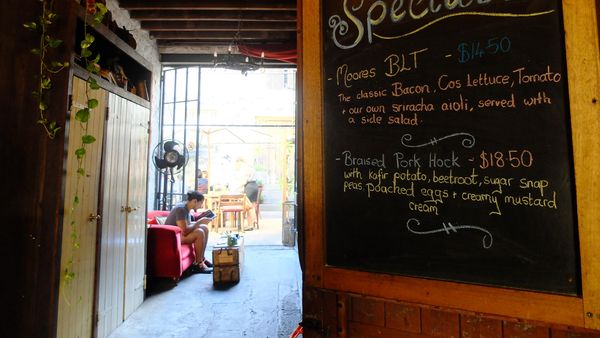 Specials
- Moores BLT - $14.50
The classic Bacon, Cos Lettuce, Tomato
+ our own sriracha aioli, served with
a side salad.
- Braised Pork Hock - $18.50
with kafir potato, beetroot, sugar snap
peas, poached eggs + creamy mustard
cream